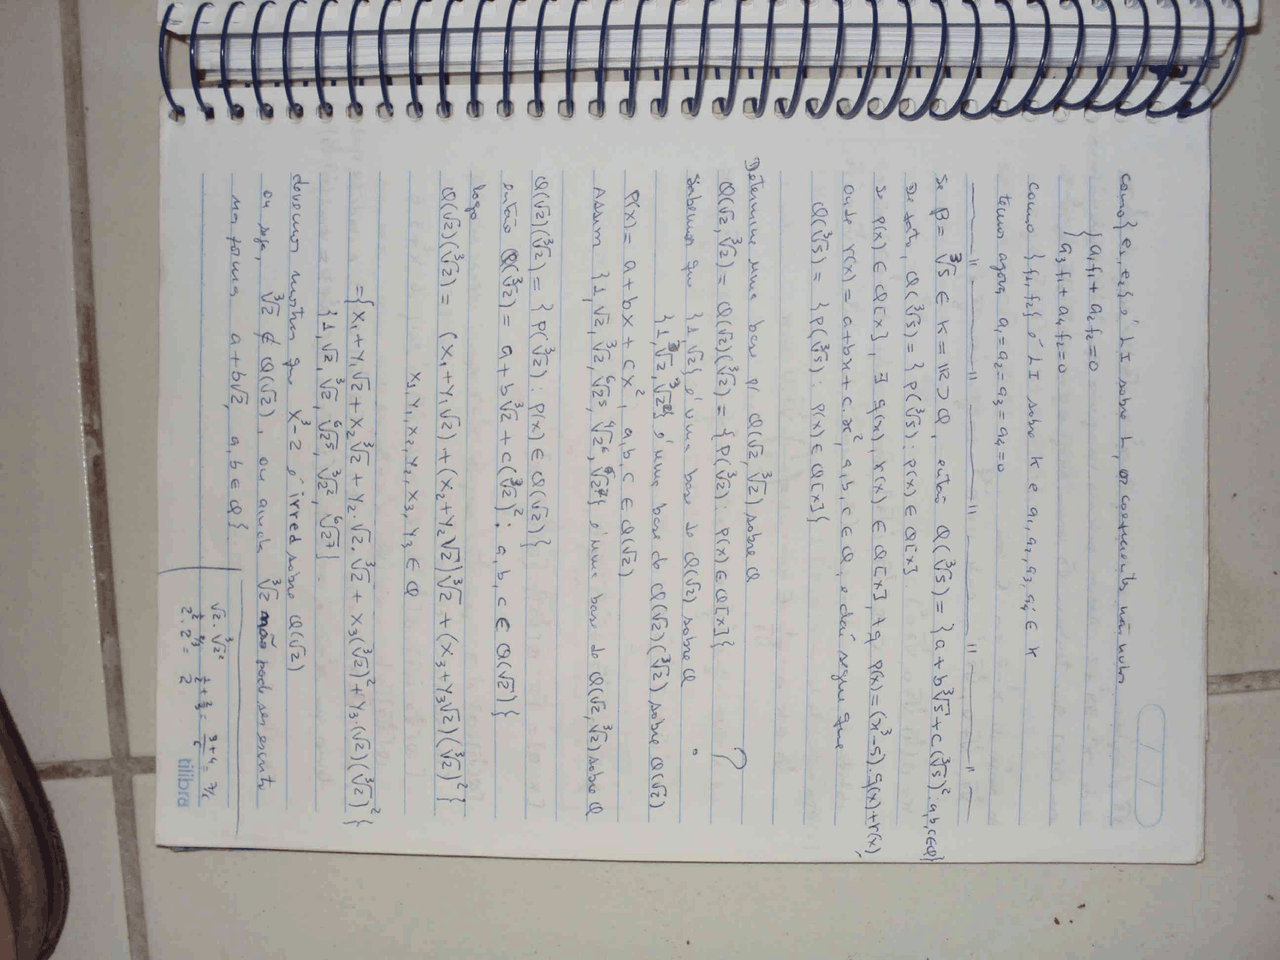 como {e₁, e₂} é LI sobre L, os coeficientes são nulos
{a₁f₁ + a₂f₂ = 0
{a₃f₁ + a₄f₂ = 0
como {f₁, f₂} é LI sobre K e a₁, a₂, a₃, a₄ ∈ K
temos agora a₁ = a₂ = a₃ = a₄ = 0
— " — " — " — " —
se β = ∛5 ∈ K = ℝ ⊃ ℚ, então ℚ(∛5) = {a + b∛5 + c(∛5)²: a, b, c ∈ ℚ}
De fato, ℚ(∛5) = {P(∛5): P(x) ∈ ℚ[x]
se P(x) ∈ ℚ[x], ∃ q(x), r(x) ∈ ℚ[x], tq P(x) = (x³-5).q(x) + r(x),
onde r(x) = a + bx + c.x², a, b, c ∈ ℚ, e daí segue que
ℚ(∛5) = {P(∛5): P(x) ∈ ℚ[x]}
Determine uma base p/ ℚ(√2, ∛2) sobre ℚ
ℚ(√2, ∛2) = ℚ(√2)(∛2) = {P(∛2): P(x) ∈ ℚ[x]} ?
Sabemos que {1, √2} é uma base de ℚ(√2) sobre ℚ
{1, ∛2, ∛2²} é uma base de ℚ(√2)(∛2) sobre ℚ(√2)
Assim {1, √2, ∛2, ⁶√2⁵, ⁶√2⁴, ⁶√2⁷} é uma base de ℚ(√2, ∛2) sobre ℚ
P(x) = a + bx + cx², a, b, c ∈ ℚ(√2)
ℚ(√2)(∛2) = {P(∛2): P(x) ∈ ℚ(√2)}
então ℚ(∛2) = a + b∛2 + c(∛2)²: a, b, c ∈ ℚ(√2)}
logo
ℚ(√2)(∛2) = (x₁ + y₁√2) + (x₂ + y₂√2)∛2 + (x₃ + y₃√2)(∛2)²}
x₁, y₁, x₂, y₂, x₃, y₃ ∈ ℚ
= {x₁ + y₁√2 + x₂∛2 + y₂.√2.∛2 + x₃(∛2)² + y₃.(√2)(∛2)²}
{1, √2, ∛2, ⁶√2⁵, ∛2, ⁶√2⁷}.
devemos mostrar que x³-2 é irred sobre ℚ(√2)
ou seja, ∛2 ∉ ℚ(√2), ou ainda ∛2 não pode ser escrito
na forma a + b√2, a, b ∈ ℚ}
√2.∛2²
2^(1/2).2^(2/3) = 2^(1/2+2/3) = (3+4)/6 = 7/6
tilibra